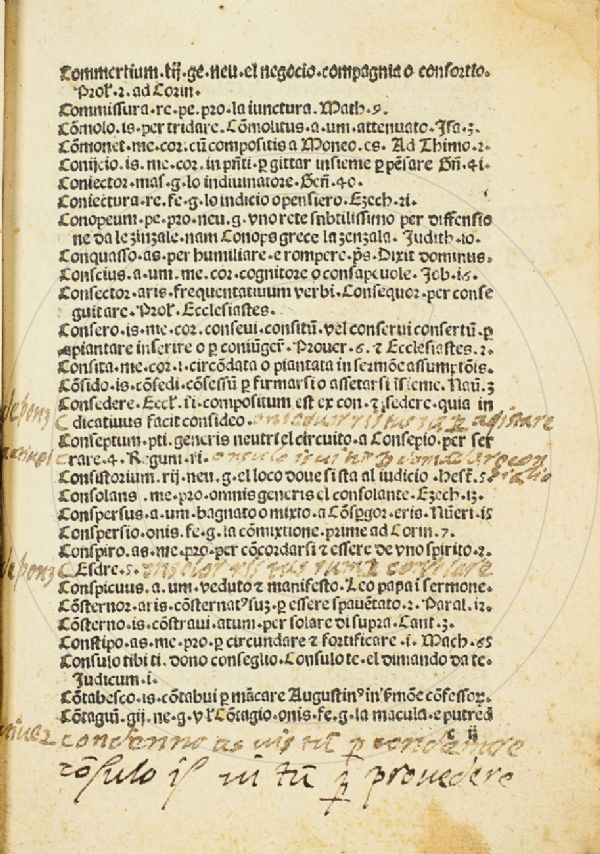 Commertium·tij·ge·neu·el negocio·compagnia o consortio·
Proł·2·ad Corin·
Commissura·re·pe·pro·la iunctura·Math·9·
Cōmolo·is·per tridare·Cōmolitus·a·um·attenuato·Isa·3·
Cōmonet·me·cor·cū compositis a Moneo·es·Ad Thimo·2·
Coniicio·is·me·cor·in pn̄ti·ꝑ gittar insieme ꝑ pēsare Gn̄·41·
Coniector·mas·g·lo indiuinatore·Gen̄·40·
Coniectura·re·fe·g·lo indicio o pensiero·Ezech·21·
Conopeum·pe·pro·neu·g·vno rete subtilissimo per diffensio
ne da le zinzale·nam Conops grece la zenzala·Judith·10·
Conquasso·as·per humiliare·e rompere·p̄s·Dixit dominus·
Conscius·a·um·me·cor·cognitore o consapeuole·Job·16·
Consector·aris·frequentatiuum verbi·Consequor·per conse
guitare·Proł·Ecclesiastes·
Consero·is·me·cor·conseui·consitū·vel conserui consertū·ꝑ
piantare inserire o ꝑ coniūger̄·Prouer·6·⁊ Ecclesiastes·2·
Consita·me·cor·i·circōdata o piantata in sermōe assumptōis·
Cōsido·is·cōsedi·cōsessū ꝑ firmarsi o assetarsi īsieme·Naū·3
Consedere·Eccł·ii·compositum est ex con·⁊ sedere·quia in
dicatiuus facit consideo·
Conseptum·pti·generis neutri el circuito a Consepio·per ser
rare·4·Regum·11·
Consistorium·rij·neu·g·el loco doue si sta al iudicio·Hest̄·5·
Consolans·me·pro·omnis generis el consolante·Ezech·13·
Conspersus·a·um·bagnato o mixto·a Cōsꝑgor·eris·Nūeri·15
Conspersio·onis·fe·g·la cōmixtione·prime ad Corin·7·
Conspiro·as·me·pro·per cōcordarsi ⁊ essere de vno spirito·2·
Esdre·5·
Conspicuus·a·um·veduto ⁊ manifesto·Leo papa i sermone·
Cōsternor·aris·cōsternatꝰ suꝫ·ꝑ essere spauētato·2·Paral·12·
Cōsterno·is·cōstraui·atum·per solare di supra·Cant·3·
Constipo·as·me·pro·ꝑ circundare ⁊ fortificare·1·Mach·65
Consulo tibi ti·dono conseglio·Consulo te·el dimando da te·
Judicum·1·
Cōtabesco·is·cōtabui ꝑ mācare Augustinꝰ in ẜmōe cōfessoꝝ·
Cōtagiū·gij·ne·g·vł Cōtagio·onis·fe·g·la macula·e putred
c ij
condenno as uis tū ꝑ condennare
cōsulo is ui tū ꝑ prouedere